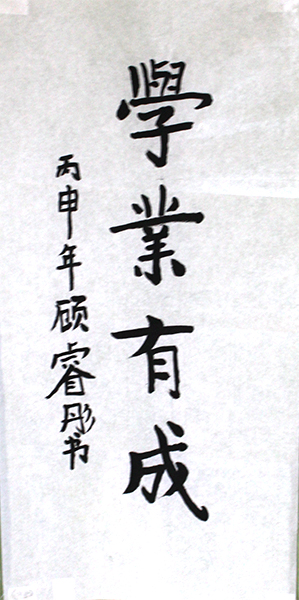 學業有成
丙申年顾睿彤书